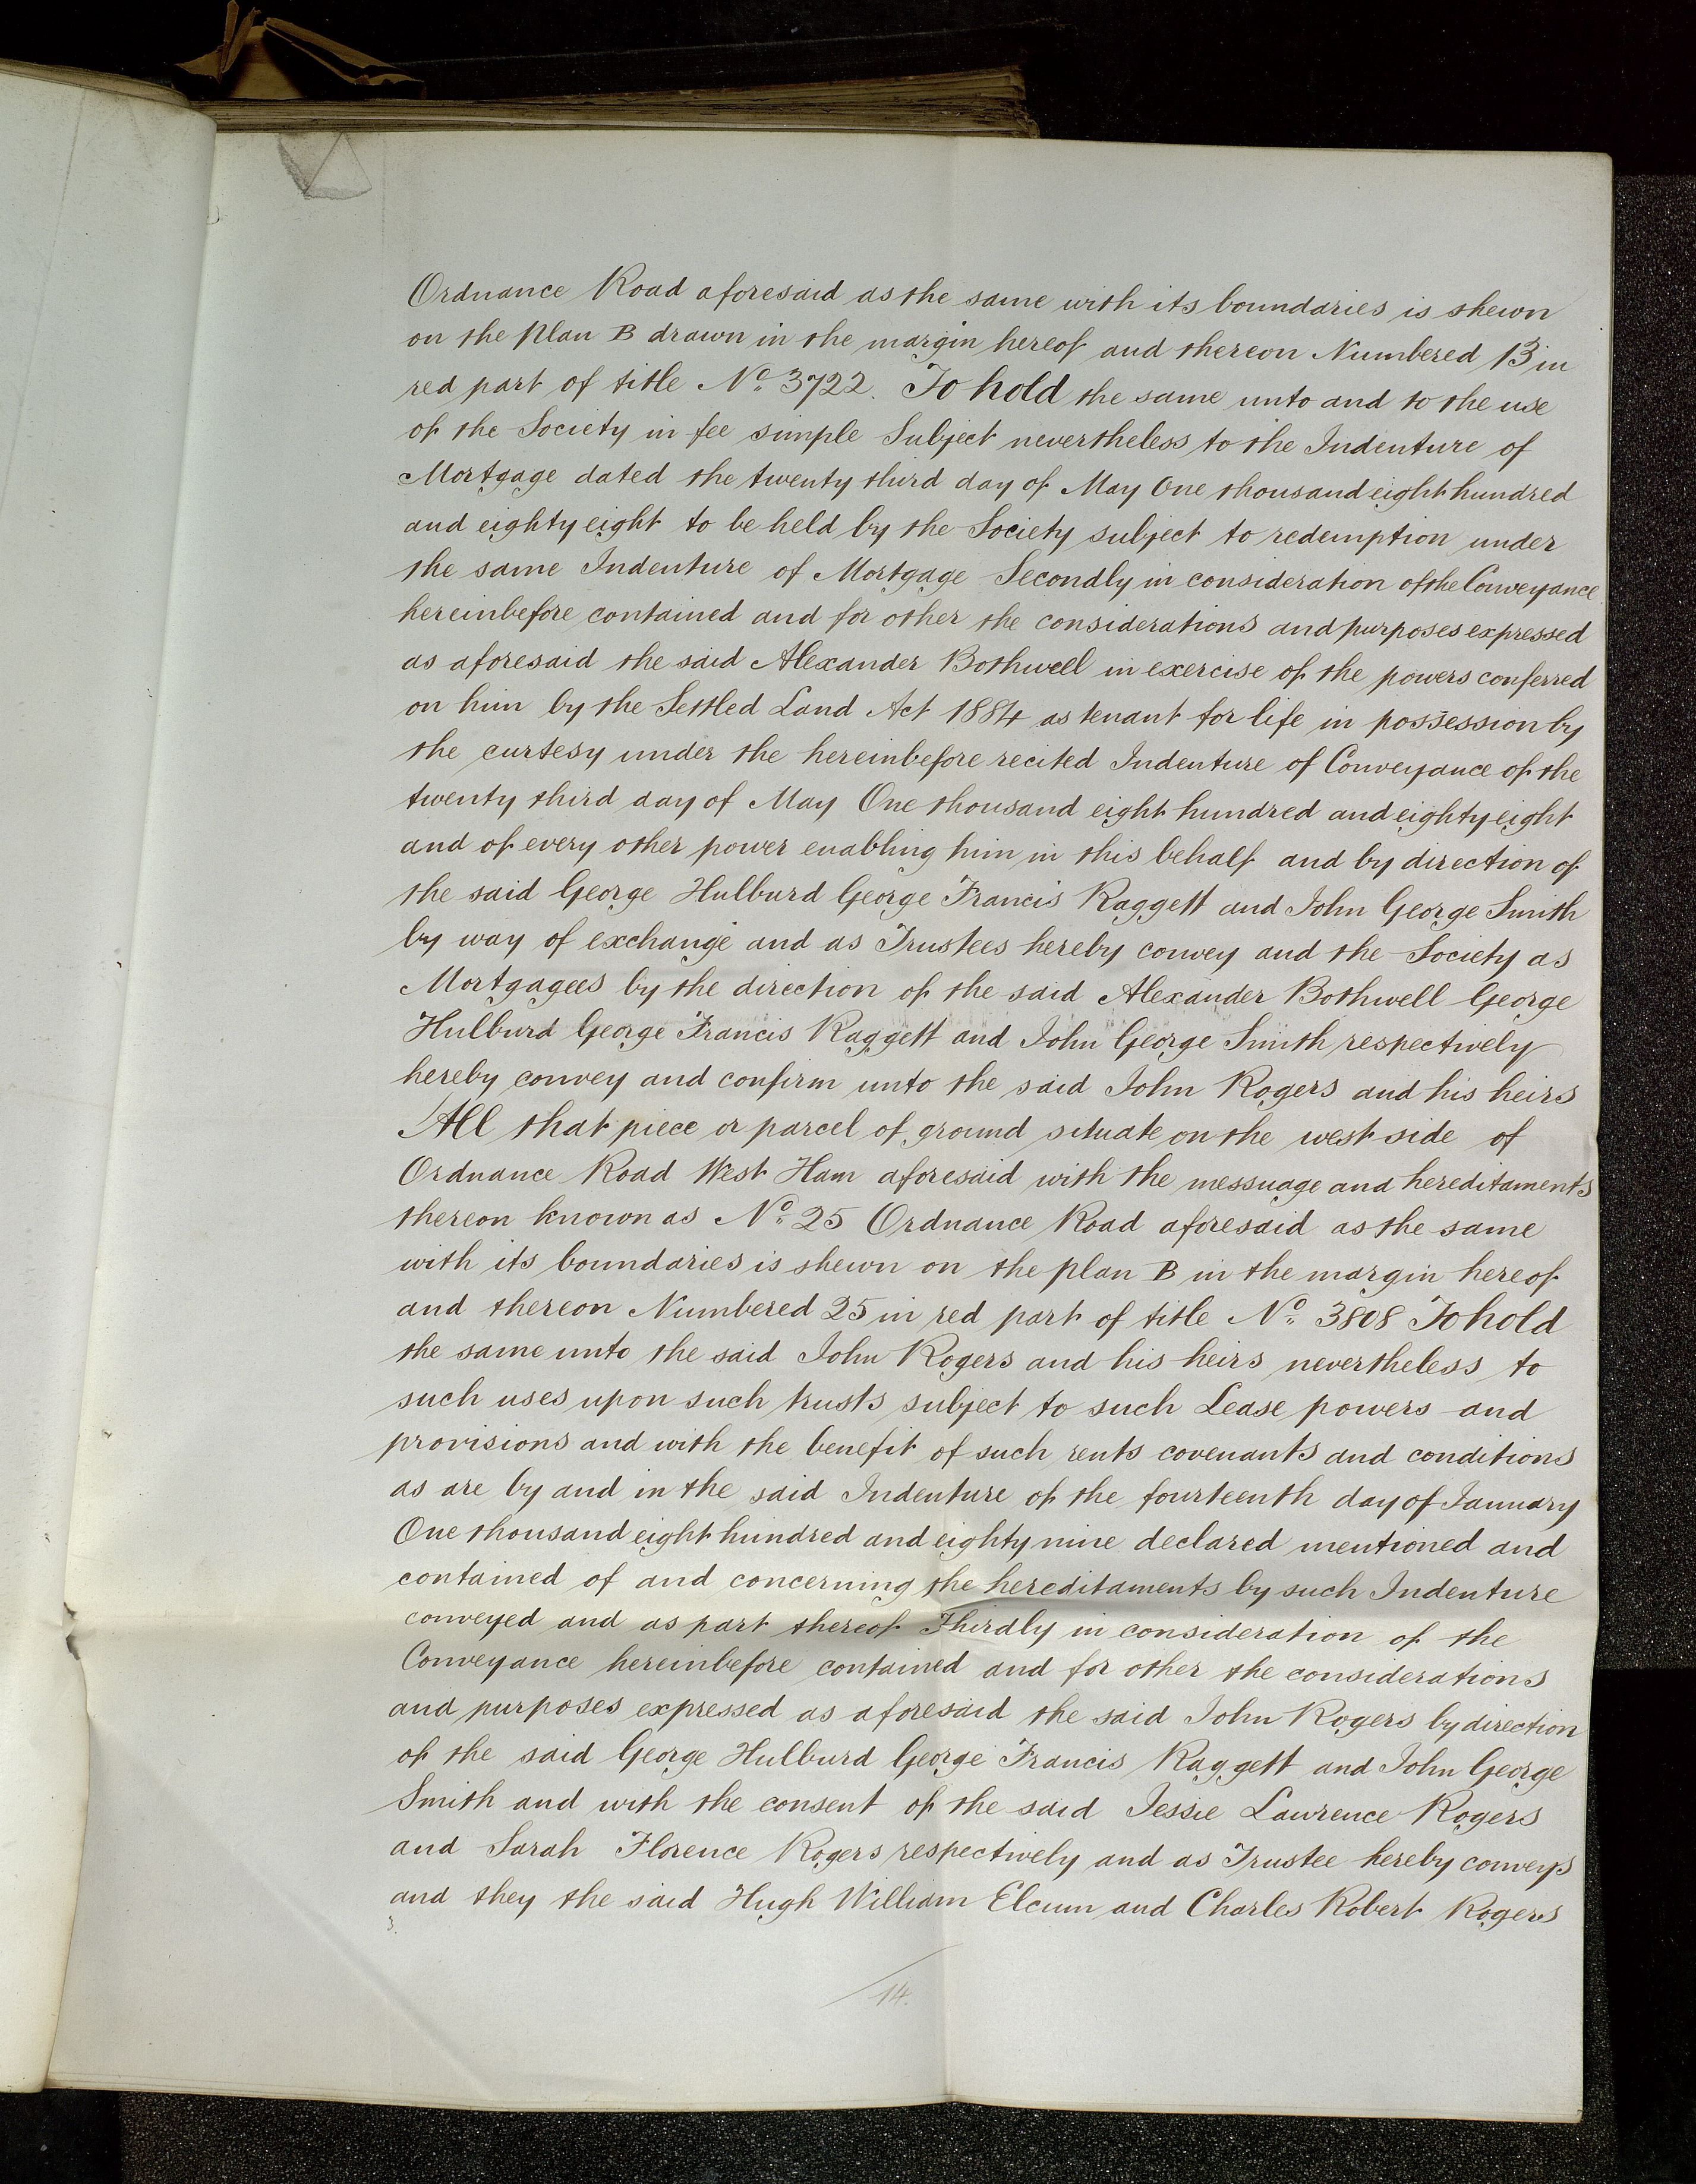 Ordnance Road aforesaid as the same with its boundaries is shewn
on the plan B drawn in the margin hereof and thereon Numbered 13 in
red part of title No. 3722. To hold the same unto and to the use
of the Society in fee simple Subject nevertheless to the Indenture of
Mortgage dated the twenty third day of May One thousand eight hundred
and eighty eight to be held by the Society subject to redemption under
the same Indenture of Mortgage Secondly in consideration of the Conveyance
hereinbefore contained and for other the considerations and purposes expressed
as aforesaid the said Alexander Bothwell in exercise of the powers conferred
on him by the Settled Land Act 1884 as tenant for life in possession by
the curtesy under the hereinbefore recited Indenture of Conveyance of the
twenty third day of May One thousand eight hundred and eighty eight
and of every other power enabling him in this behalf and by direction of
the said George Hulburd George Francis Raggett and John George Smith
by way of exchange and as Trustees hereby convey and the Society as
Mortgagees by the direction of the said Alexander Bothwell George
Hulburd George Francis Raggett and John George Smith respectively
hereby convey and confirm unto the said John Rogers and his heirs
All that piece or parcel of ground situate on the west side of
Ordnance Road West Ham aforesaid with the messuage and hereditaments
thereon known as No. 25 Ordnance Road aforesaid as the same
with its boundaries is shewn on the plan B in the margin hereof
and thereon Numbered 25 in red part of title No. 3808 To hold
the same unto the said John Rogers and his heirs nevertheless to
such uses upon such trusts subject to such Lease powers and
provisions and with the benefit of such rents covenants and conditions
as are by and in the said Indenture of the fourteenth day of January
One thousand eight hundred and eighty nine declared mentioned and
contained of and concerning the hereditaments by such Indenture
conveyed and as part thereof Thirdly in consideration of the
Conveyance hereinbefore contained and for other the considerations
and purposes expressed as aforesaid the said John Rogers by direction
of the said George Hulburd George Francis Raggett and John George
Smith and with the consent of the said Jessie Lawrence Rogers
and Sarah Florence Rogers respectively and as Trustee hereby conveys
and they the said Hugh William Elcum and Charles Robert Rogers
3.
14.